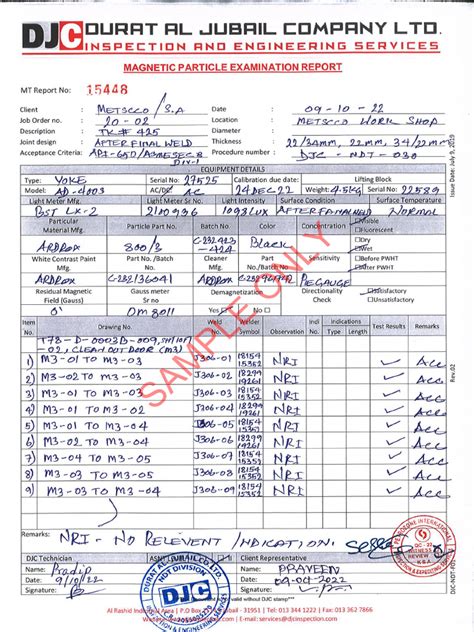 DJC DURAT AL JUBAIL COMPANY LTD.
INSPECTION AND ENGINEERING SERVICES
MAGNETIC PARTICLE EXAMINATION REPORT
MT Report No: 15448
Client : METSCCO / S.A Date : 09-10-22
Job Order no. : 20-02 Location : METSCCO WORK SHOP
Description : TK# 425 Diameter :
Joint design : AFTER FINAL WELD Thickness : 22/34mm, 22mm, 34/22mm
Acceptance Criteria: API-650/ASME SEC 8 DIV-1 Procedure number : DJC - NDT - 030
Issue Date: July 9, 2019
EQUIPMENT DETAILS
Type: YOKE Serial No: 27525 Calibration due date: Lifting Block
Model: AD-4003 AC/DC AC 24 DEC 22 Weight: 4.5kg Serial No: 22589
Light Meter Mfg. Light Meter Sr No. Light Intensity Surface Condition Surface Temperature
2100996 1098 LUX AFTER FINAL WELD NORMAL
Particular Material Mfg. Particle Part No. Batch No. Color Concentration Visible
Fluorescent
ARDROX 800/3 Black Dry
Wet
White Contrast Paint Mfg. Part No./Batch No. Cleaner Mfg. Part No./Batch No. Sensitivity Before PWHT
After PWHT
ARDROX ARDROX PIE GAUGE
Residual Magnetic Field (Gauss) Gauss meter Sr no Demagnetization Directionality Check Satisfactory
Unsatisfactory
Item No. Drawing No. Weld No. Welder Symbol Observation Ind No. Indications Type Length Test Results Remarks
02, CLEAN OUT DOOR (M3)
1) M3-01 TO M3-03 J306-01 18154 15352 NRI ✓ Acc
2) M3-02 TO M3-03 J306-02 18299 19261 NRI ✓ Acc
3) M3-01 TO M3-04 J306-03 18154 15352 NRI ✓ Acc
4) M3-02 TO M3-04 J306-04 18299 19261 NRI ✓ Acc
5) M3-01 TO M3-05 J206-05 18154 15352 NRI ✓ Acc
6) M3-02 TO M3-05 J306-06 18299 19261 NRI ✓ Acc
7) M3-03 TO M3-04 J306-07 18154 15352 NRI ✓ Acc
8) M3-03 TO M3-05 J306-08 18154 15352 NRI ✓ Acc
9) M3-03 TO M3-04 J306-09 18154 15352 NRI ✓ Acc
Rev.02
SAMPLE ONLY
Remarks: NRI - NO RELEVENT INDICATION.
DJC Technician Client Representative
Name: Pradip PRAVEEN
Date: 9/10/22 09-OCT-2022
Signature:
DURAT AL JUBAIL CO LTD
NDT DIVISION
DJC
QC - 22
WITNESS
REVIEW
KSA
not valid without DJC stamp